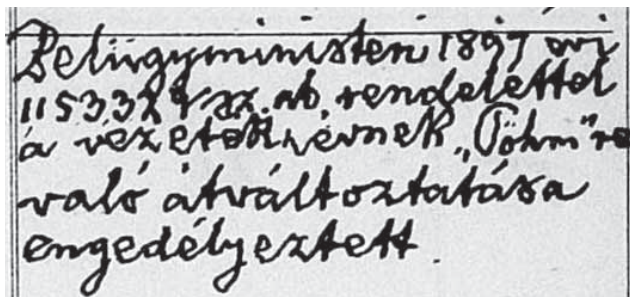 Belügyministeri 1897 évi
115332 sz. ab. rendelettel
a vezetéknévnek „Böhm"re
való átváltoztatása
engedélyeztett.